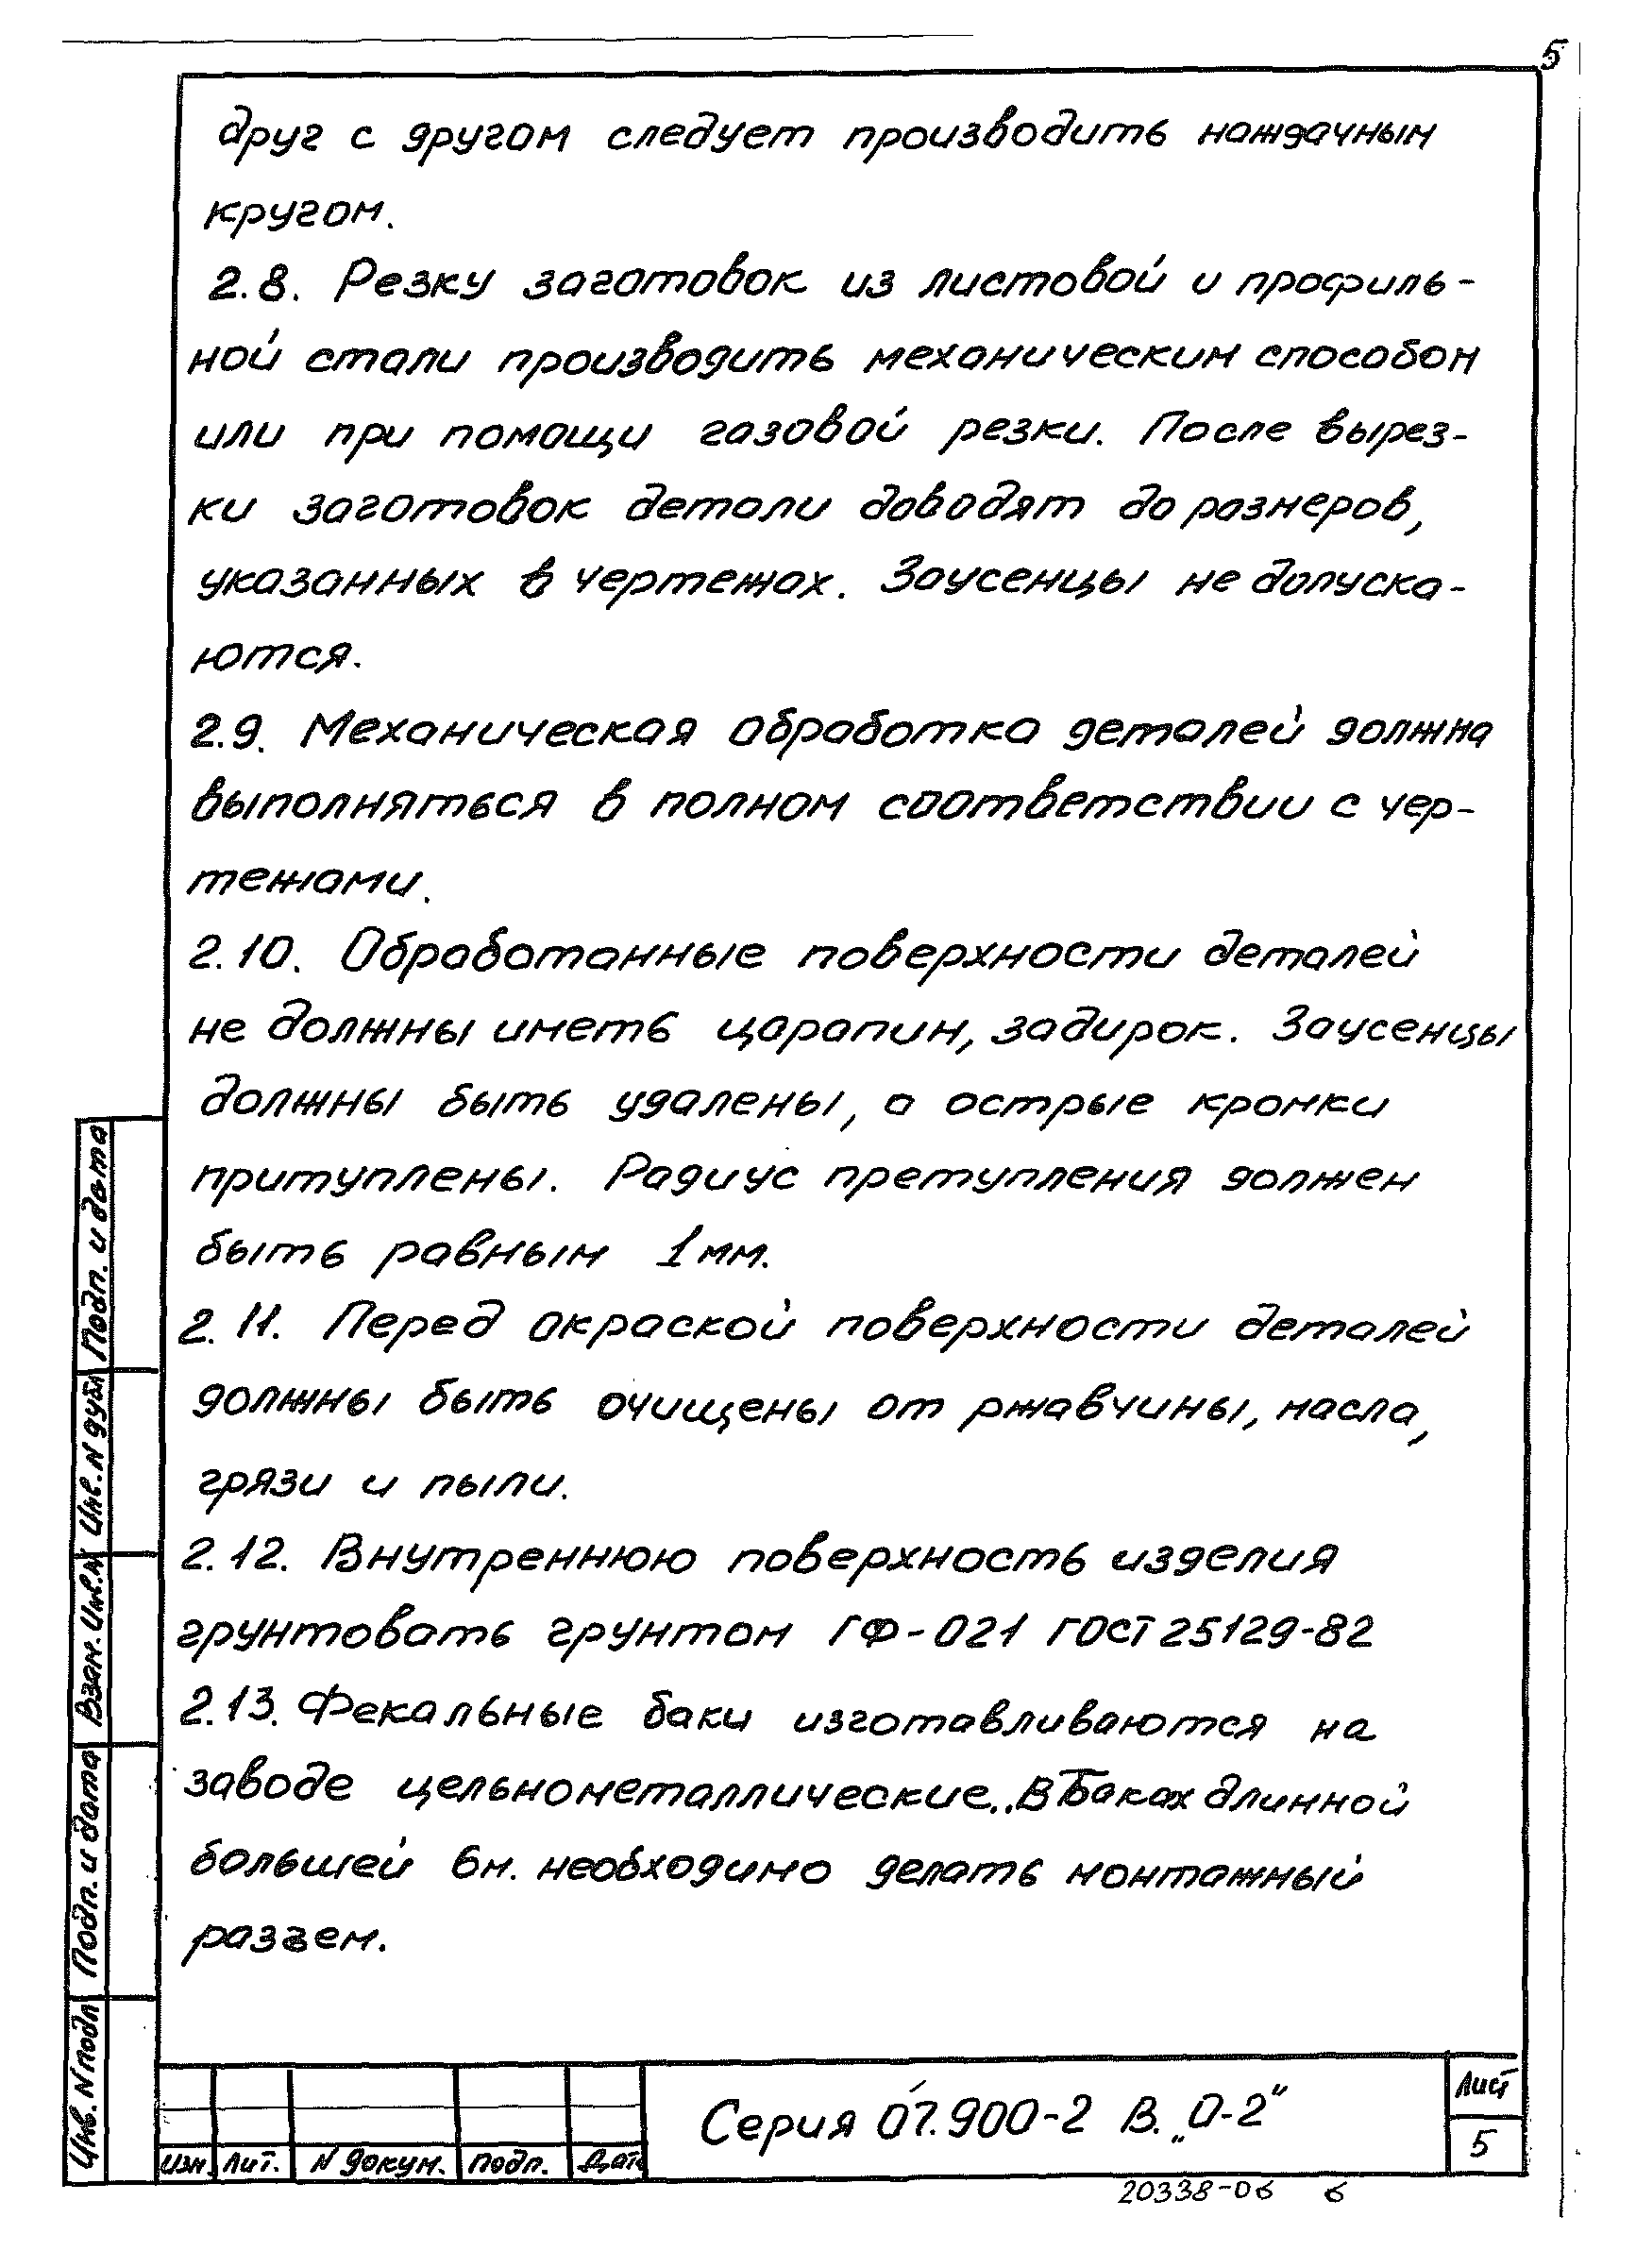 5
друг с другом следует производить наждачным
кругом.
2.8. Резку заготовок из листовой и профиль-
ной стали производить механическим способом
или при помощи газовой резки. После вырез-
ки заготовок детали доводят до размеров,
указанных в чертежах. Заусенцы не допуска-
ются.
2.9. Механическая обработка деталей должна
выполняться в полном соответствии с чер-
тежами.
2.10. Обработанные поверхности деталей
не должны иметь царапин, задирок. Заусенцы
должны быть удалены, а острые кромки
притуплены. Радиус претупления должен
быть равным 1мм.
2.11. Перед окраской поверхности деталей
должны быть очищены от ржавчины, масла,
грязи и пыли.
2.12. Внутреннюю поверхность изделия
грунтовать грунтом ГФ-021 ГОСТ 25129-82
2.13. Фекальные баки изготавливаются на
заводе цельнометаллические.. В баках длинной
большей 6м. необходимо делать монтажный
разъем.
Подп. и дата
Инв. N дубл
Взам. Инв. N
Подп. и дата
Инв. N подл
Изм. Лит. N докум. Подп. Дат
Серия 07.900-2 В. „0-2"
Лист
5
20338-06 6